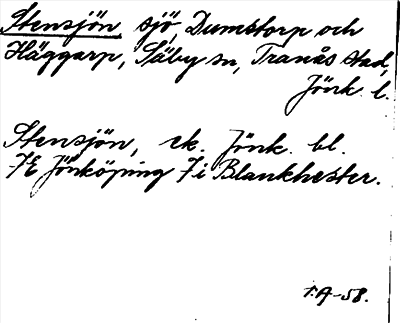 Stensjön sjö, Dumstorp och
Häggarp, Säby sn, Tranås stad,
Jönk. l.
Stensjön, ek. Jönk. bl.
7E Jönköping 7i Blankhester.
I.A-58.